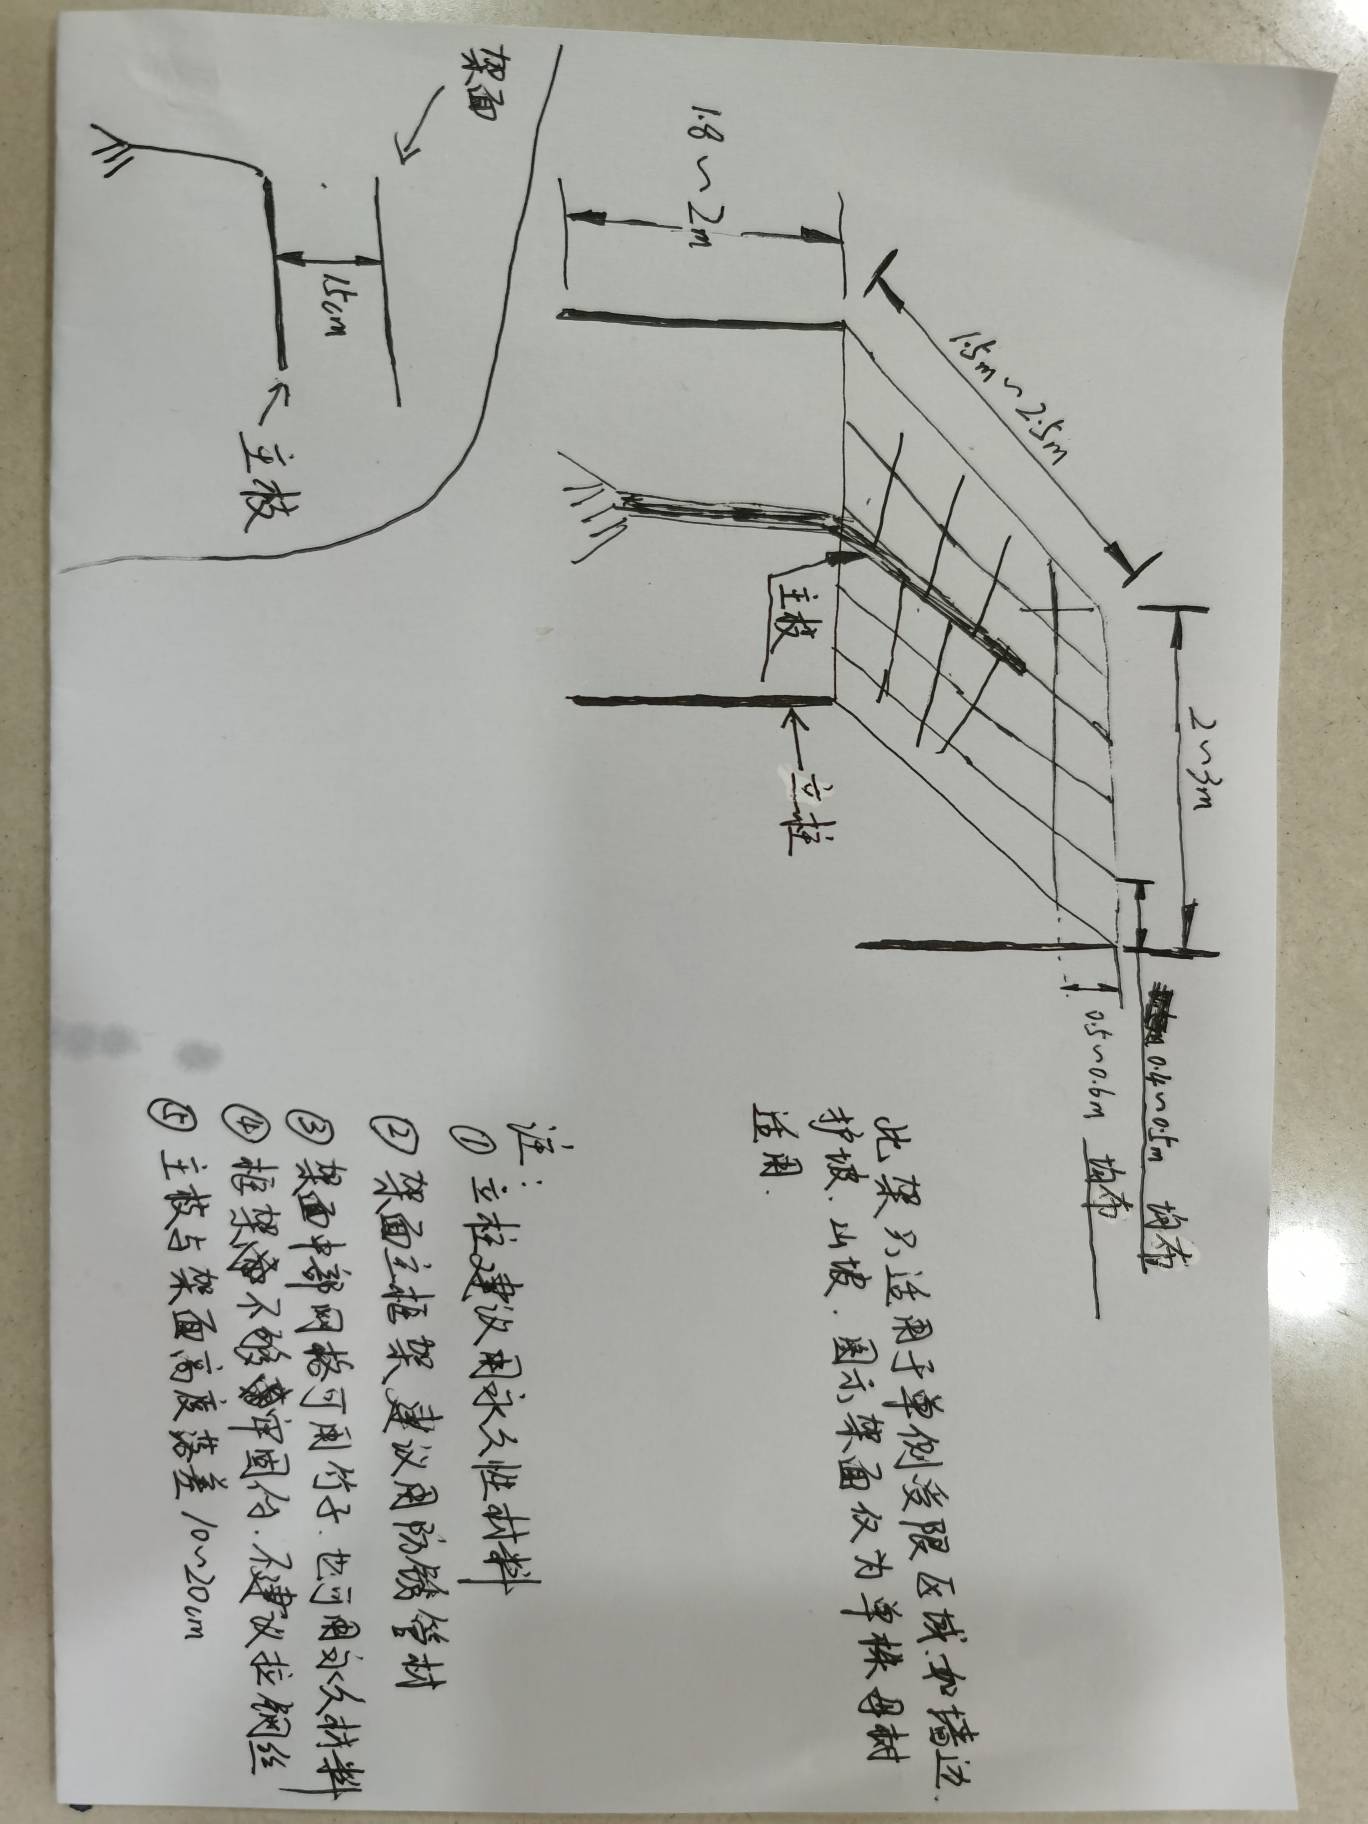 1.8~2m
1.5m~2.5m
2~3m
0.4~0.5m 均布
0.5~0.6m 均布
主枝
立柱
架面
15cm
主枝
此架只适用于单侧受限区域.如墙边.
护坡.山坡.图示架面仅为单株母树
适用.
注:
① 立柱建议用永久性材料
② 架面主框架建议用防锈管材
③ 架面中部网格可用竹子.也可用永久材料
④ 框架不够牢固的.不建议拉钢丝
⑤ 主枝与架面高度落差10~20cm